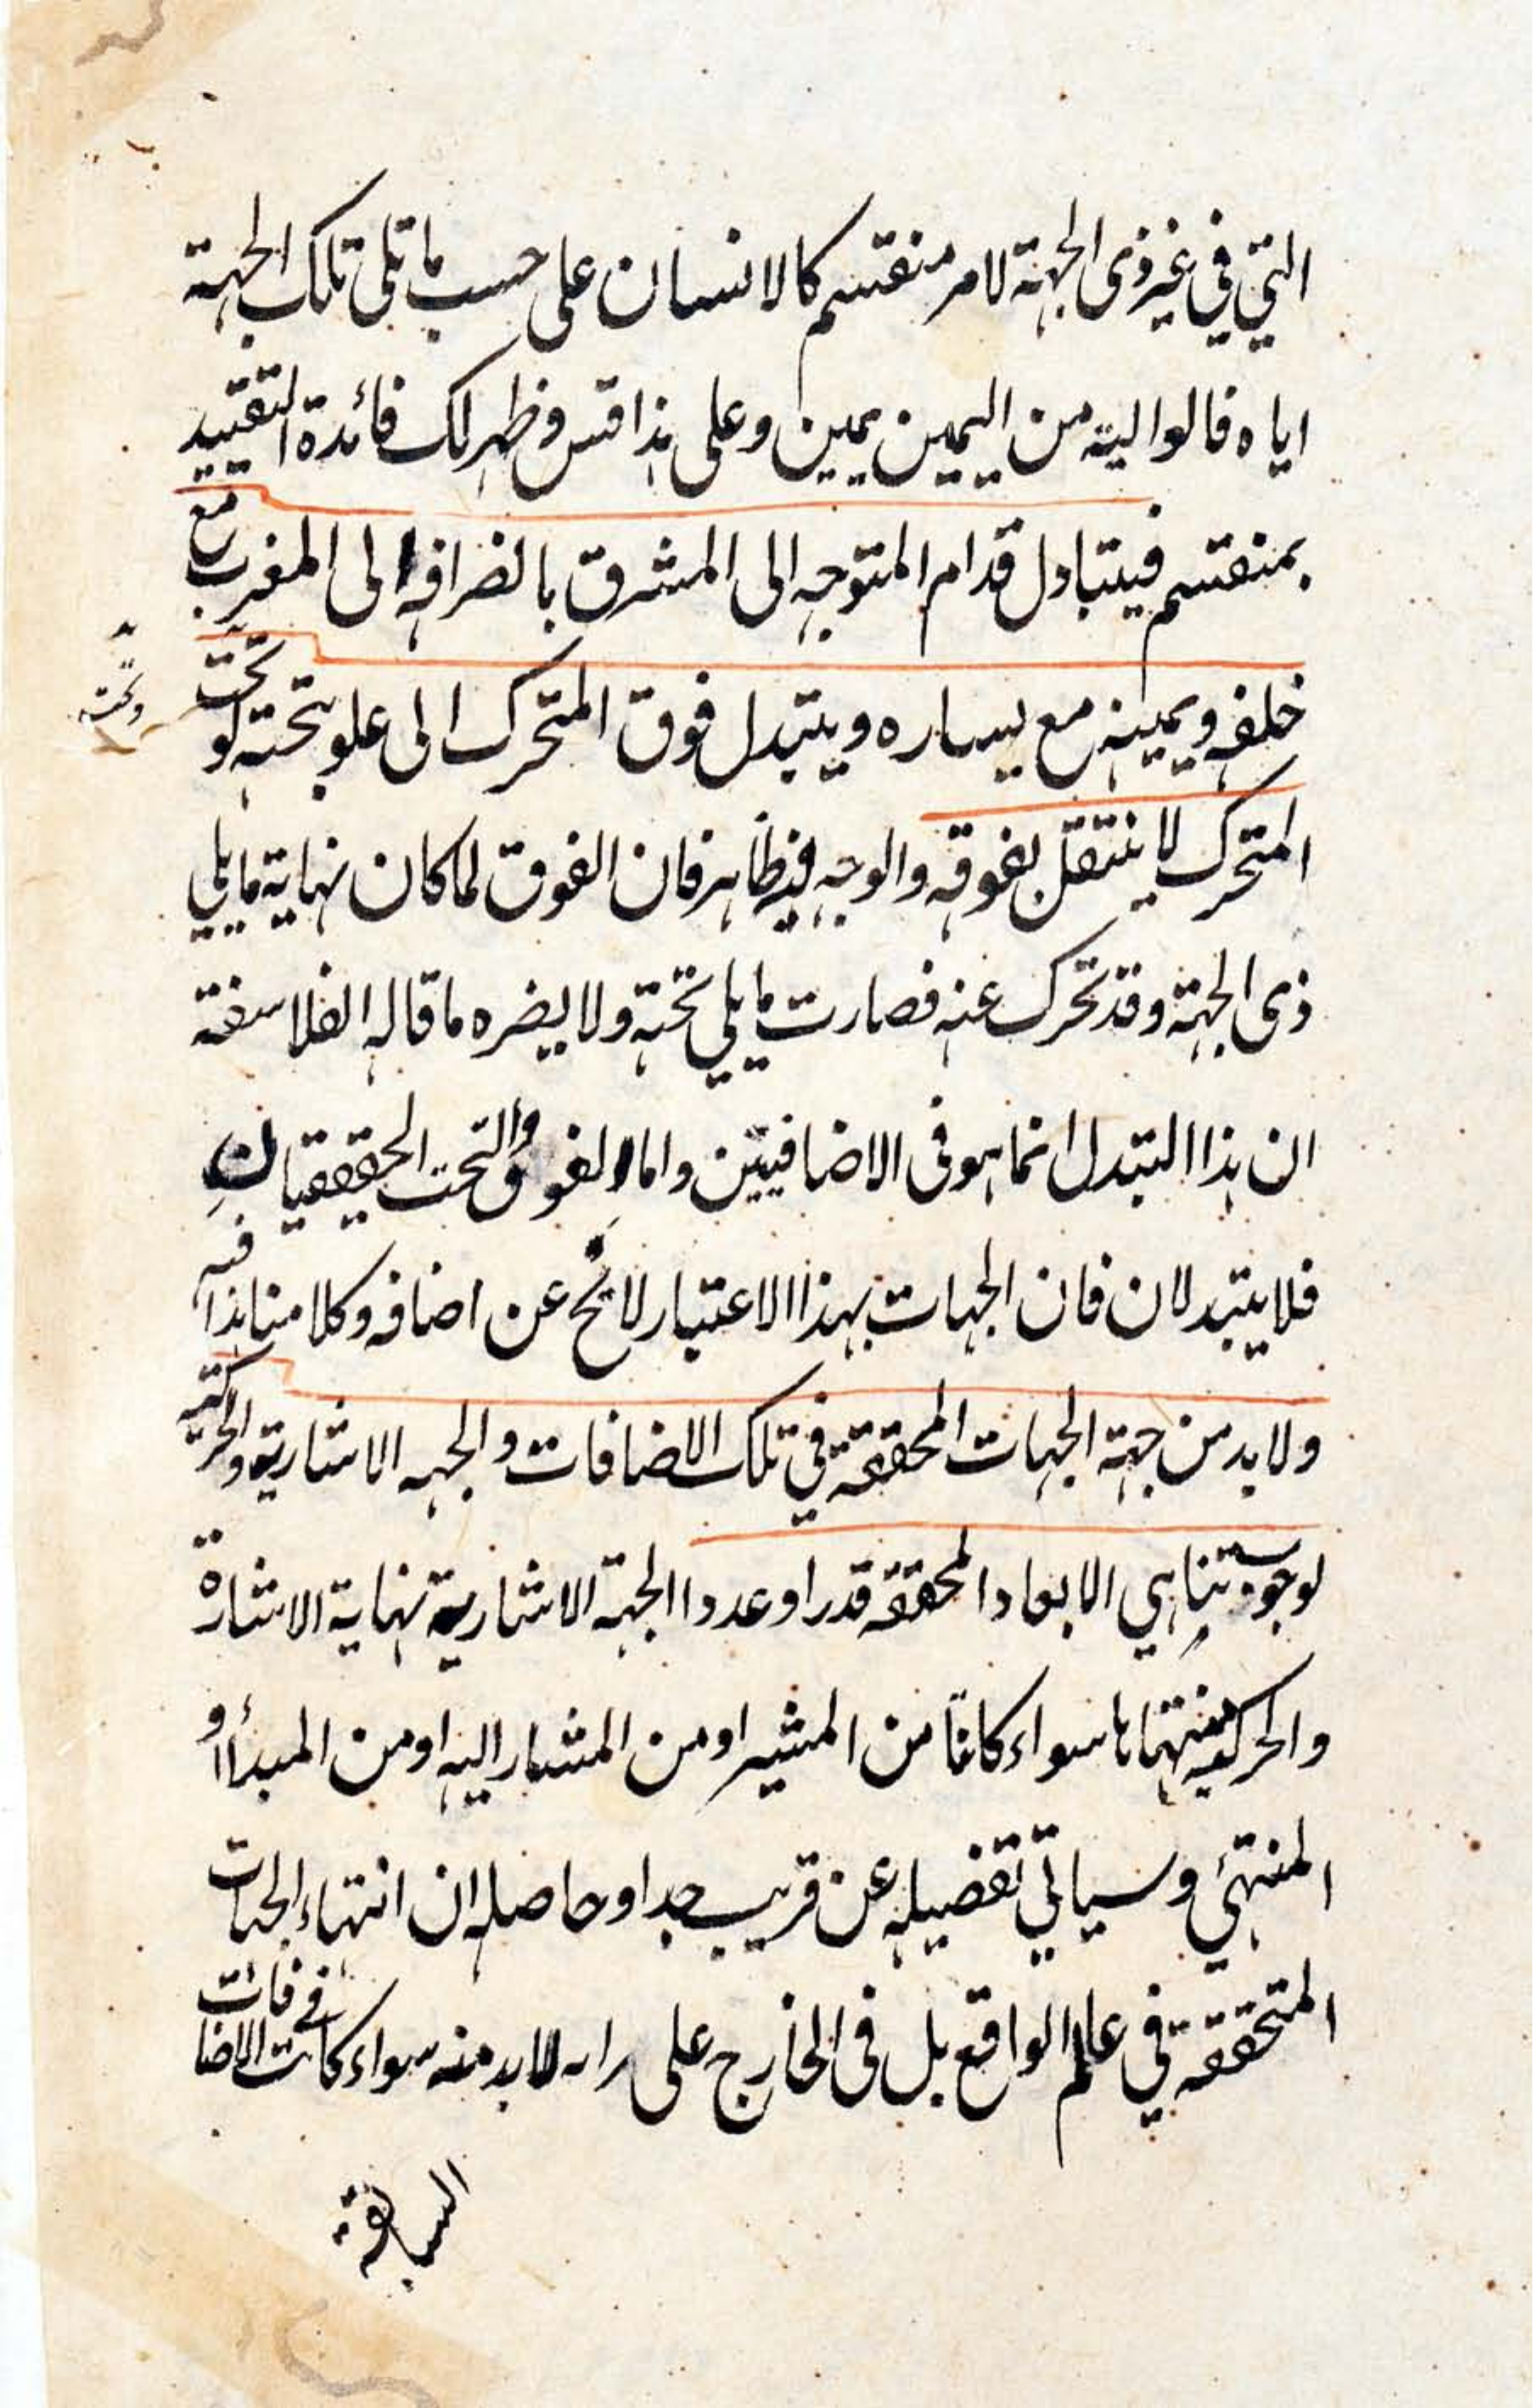 التي في غير ذى الجهة لامر منقسم كالانسان على حسب ما تلى تلك الجهة
اياه فالوالية من اليمين يمين وعلى هذا قس وظهر لك فائدة التقييد
بمنقسم فيتبادل قدام المتوجه الى المشرق بالضرافه الى المغرب مع
خلفه ويمينه مع يساره ويتبدل فوق المتحرك الى علو بتحته لو تحت
وتحته
المتحرك لا ينتقل بفوقه والوجه فيه ظاهر فان الفوق لما كان نهاية ما يلي
ذى الجهة وقد تحرك عنه فصارت ما يلي تحته ولا يضره ما قاله الفلاسفة
ان هذا التبدل انما هو فى الاضافيين واما الفوق والتحت الحقيقيان
فلا يتبدلان فان الجهات بهذا الاعتبار لا يخ عن اضافه وكلامنا هذا فيه
ولا بد من جهة الجهات المحققة في تلك الاضافات والجهه الاشارية والحركية
لوجوب تناهي الابعاد المحققه قدرا وعددا الجهة الاشارية نهاية الاشارة
والحركية منتهاها سواء كانتا من المشير او من المشار اليه او من المبدأ او
المنتهي وسياتي تفضيله عن قريب جدا وحاصله ان انتهاء الجهات
المتحققة في علم الواقع بل فى الخارج على راه لا بد منه سواء كانت الاضافات في
السابقة